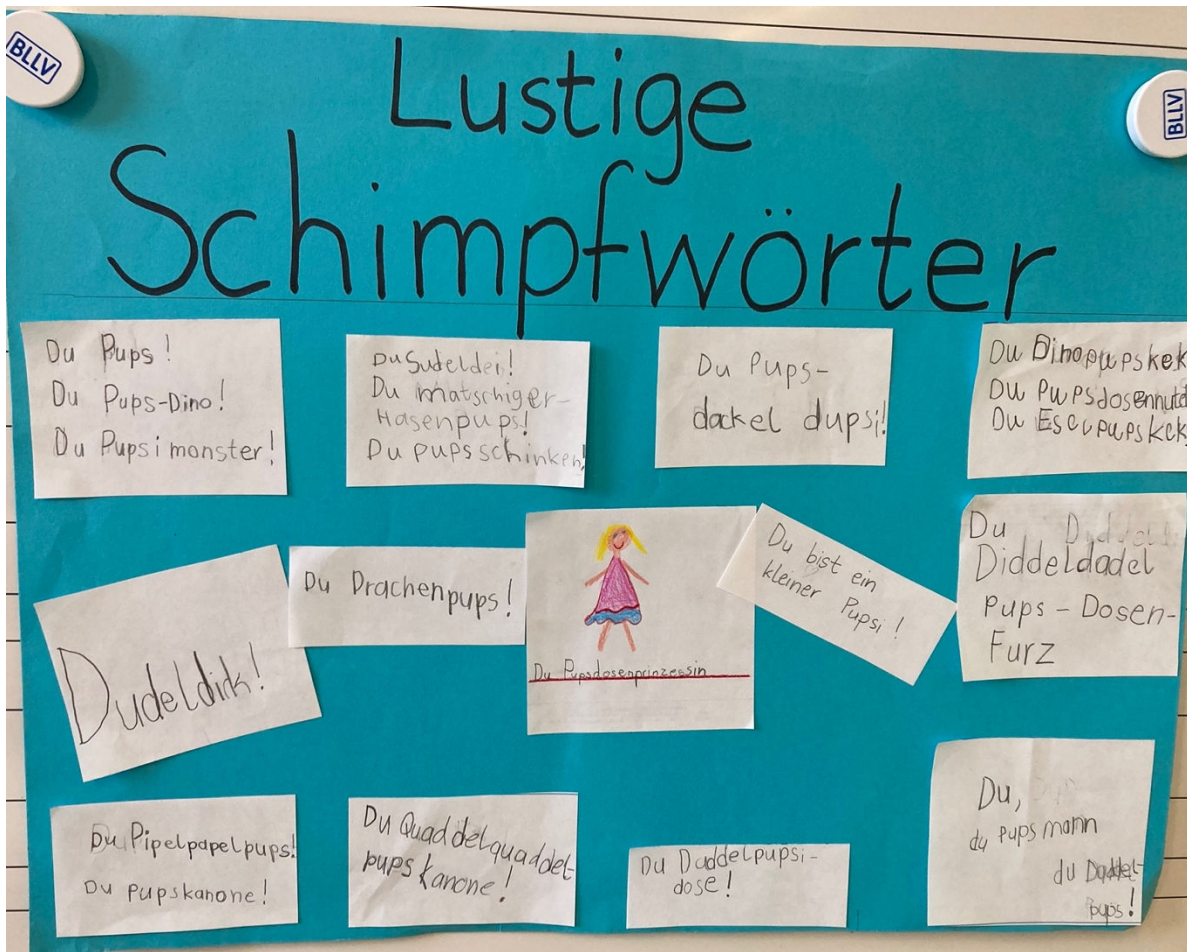 BLLV
BLLV
Lustige
Schimpfwörter
Du Pups!
Du Pups-Dino!
Du Pupsimonster!
Du Sudeldei!
Du matschiger-
Hasenpups!
Du pupsschinken!
Du Pups-
dackel dupsi!
Du Dinopupskek
Du Pupsdosennud
Du
Dudeldirk!
Du Drachenpups!
Du Pupsdosenprinzessin
Du bist ein
kleiner Pupsi!
Du
Diddeldadel
pups-Dosen-
Furz
Du Pipelpapelpups!
Du Pupskanone!
Du Quaddelquaddel-
pupskanone!
Du Daddelpupsi-
dose!
Du,
du pupsmann
du Daddel-
pups!